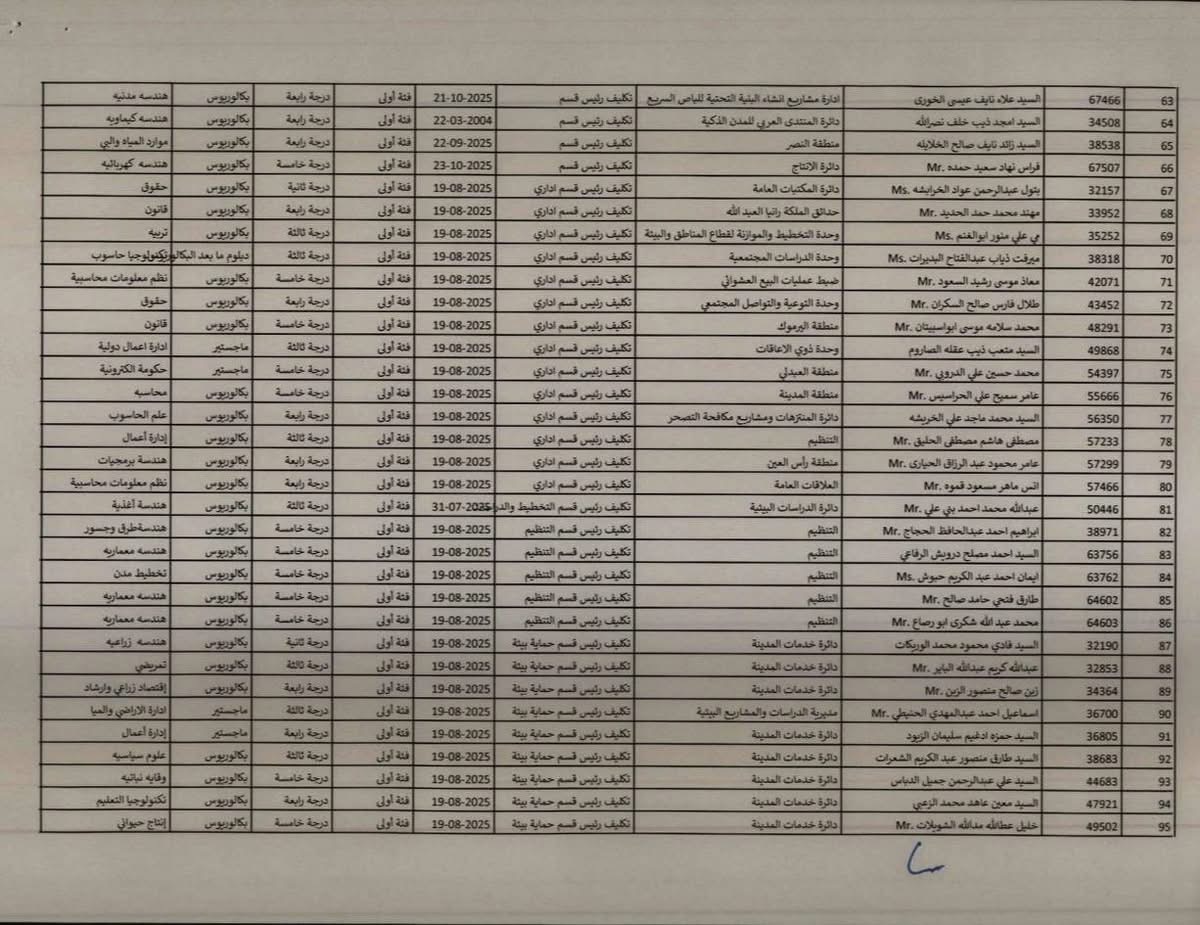 63 67466 السيد علاء نايف عيسى الخورى ادارة مشاريع انشاء البنية التحتية للباص السريع تكليف رئيس قسم 21-10-2025 فئة أولى درجة رابعة بكالوريوس هندسه مدنيه
64 34508 السيد امجد ذيب خلف نصرالله دائرة المنتدى العربي للمدن الذكية تكليف رئيس قسم 22-03-2004 فئة أولى درجة رابعة بكالوريوس هندسه كيماويه
65 38538 السيد زائد نايف صالح الخلايله منطقة النصر تكليف رئيس قسم 22-09-2025 فئة أولى درجة رابعة بكالوريوس موارد المياه والبي
66 67507 فراس نهاد سعيد حمده .Mr دائرة الانتاج تكليف رئيس قسم 23-10-2025 فئة أولى درجة خامسة بكالوريوس هندسه كهربائيه
67 32157 بتول عبدالرحمن عواد الخرابشه .Ms دائرة المكتبات العامة تكليف رئيس قسم اداري 19-08-2025 فئة أولى درجة ثانية بكالوريوس حقوق
68 33952 مهند محمد حمد الحديد .Mr حدائق الملكة رانيا العبد الله تكليف رئيس قسم اداري 19-08-2025 فئة أولى درجة رابعة بكالوريوس قانون
69 35252 مي علي منور ابوالغنم .Ms وحدة التخطيط والموازنة لقطاع المناطق والبيئة تكليف رئيس قسم اداري 19-08-2025 فئة أولى درجة ثالثة بكالوريوس تربيه
70 38318 ميرفت ذياب عبدالفتاح البديرات .Ms وحدة الدراسات المجتمعية تكليف رئيس قسم اداري 19-08-2025 فئة أولى درجة ثالثة دبلوم ما بعد البكالوريوس تكنولوجيا حاسوب
71 42071 معاذ موسى رشيد السعود .Mr ضبط عمليات البيع العشوائي تكليف رئيس قسم اداري 19-08-2025 فئة أولى درجة خامسة بكالوريوس نظم معلومات محاسبية
72 43452 طلال فارس صالح السكران .Mr وحدة التوعية والتواصل المجتمعي تكليف رئيس قسم اداري 19-08-2025 فئة أولى درجة رابعة بكالوريوس حقوق
73 48291 محمد سلامه موسى ابواسبيتان .Mr منطقة اليرموك تكليف رئيس قسم اداري 19-08-2025 فئة أولى درجة خامسة بكالوريوس قانون
74 49868 السيد متعب ذيب عقله الصاروم وحدة ذوي الاعاقات تكليف رئيس قسم اداري 19-08-2025 فئة أولى درجة ثالثة ماجستير ادارة اعمال دولية
75 54397 محمد حسين علي الدروبي .Mr منطقة العبدلي تكليف رئيس قسم اداري 19-08-2025 فئة أولى درجة خامسة ماجستير حكومة الكترونية
76 55666 عامر سميح علي الحراسيس .Mr منطقة المدينة تكليف رئيس قسم اداري 19-08-2025 فئة أولى درجة خامسة بكالوريوس محاسبه
77 56350 السيد محمد ماجد علي الخريشه دائرة المنتزهات ومشاريع مكافحة التصحر تكليف رئيس قسم اداري 19-08-2025 فئة أولى درجة رابعة بكالوريوس علم الحاسوب
78 57233 مصطفى هاشم مصطفى الحليق .Mr التنظيم تكليف رئيس قسم اداري 19-08-2025 فئة أولى درجة ثالثة بكالوريوس إدارة أعمال
79 57299 عامر محمود عبد الرزاق الحيارى .Mr منطقة رأس العين تكليف رئيس قسم اداري 19-08-2025 فئة أولى درجة رابعة بكالوريوس هندسة برمجيات
80 57466 انس ماهر مسعود قموه .Mr العلاقات العامة تكليف رئيس قسم اداري 19-08-2025 فئة أولى درجة رابعة بكالوريوس نظم معلومات محاسبية
81 50446 عبدالله محمد احمد بني علي .Mr دائرة الدراسات البيئية تكليف رئيس قسم التخطيط 31-07-2025 فئة أولى درجة ثالثة بكالوريوس هندسة أغذية
82 38971 ابراهيم احمد عبدالحافظ الحجاج .Mr التنظيم تكليف رئيس قسم التنظيم 19-08-2025 فئة أولى درجة خامسة بكالوريوس هندسةطرق وجسور
83 63756 السيد احمد مصلح درويش الرفاعي التنظيم تكليف رئيس قسم التنظيم 19-08-2025 فئة أولى درجة خامسة بكالوريوس هندسه معماريه
84 63762 ايمان احمد عبد الكريم حبوش .Ms التنظيم تكليف رئيس قسم التنظيم 19-08-2025 فئة أولى درجة خامسة بكالوريوس تخطيط مدن
85 64602 طارق فتحي حامد صالح .Mr التنظيم تكليف رئيس قسم التنظيم 19-08-2025 فئة أولى درجة خامسة بكالوريوس هندسه معماريه
86 64603 محمد عبد الله شكرى ابو رصاع .Mr التنظيم تكليف رئيس قسم التنظيم 19-08-2025 فئة أولى درجة خامسة بكالوريوس هندسه معماريه
87 32190 السيد فادي محمود محمد الوريكات دائرة خدمات المدينة تكليف رئيس قسم حماية بيئة 19-08-2025 فئة أولى درجة ثانية بكالوريوس هندسه زراعيه
88 32853 عبدالله كريم عبدالله الباير .Mr دائرة خدمات المدينة تكليف رئيس قسم حماية بيئة 19-08-2025 فئة أولى درجة ثالثة بكالوريوس تمريضي
89 34364 زين صالح منصور الزبن .Mr دائرة خدمات المدينة تكليف رئيس قسم حماية بيئة 19-08-2025 فئة أولى درجة رابعة بكالوريوس إقتصاد زراعي وارشاد
90 36700 اسماعيل احمد عبدالمهدي الحنيطي .Mr مديرية الدراسات والمشاريع البيئية تكليف رئيس قسم حماية بيئة 19-08-2025 فئة أولى درجة ثالثة ماجستير ادارة الاراضي والميا
91 36805 السيد حمزه ادغيم سليمان الزيود دائرة خدمات المدينة تكليف رئيس قسم حماية بيئة 19-08-2025 فئة أولى درجة رابعة ماجستير إدارة أعمال
92 38683 السيد طارق منصور عبد الكريم الشعرات دائرة خدمات المدينة تكليف رئيس قسم حماية بيئة 19-08-2025 فئة أولى درجة ثالثة بكالوريوس علوم سياسيه
93 44683 السيد علي عبدالرحمن جميل الدباس دائرة خدمات المدينة تكليف رئيس قسم حماية بيئة 19-08-2025 فئة أولى درجة خامسة بكالوريوس وقايه نباتيه
94 47921 السيد معين عاهد محمد الزعبي دائرة خدمات المدينة تكليف رئيس قسم حماية بيئة 19-08-2025 فئة أولى درجة رابعة بكالوريوس تكنولوجيا التعليم
95 49502 خليل عطالله مدالله الشويلات .Mr دائرة خدمات المدينة تكليف رئيس قسم حماية بيئة 19-08-2025 فئة أولى درجة خامسة بكالوريوس إنتاج حيواني